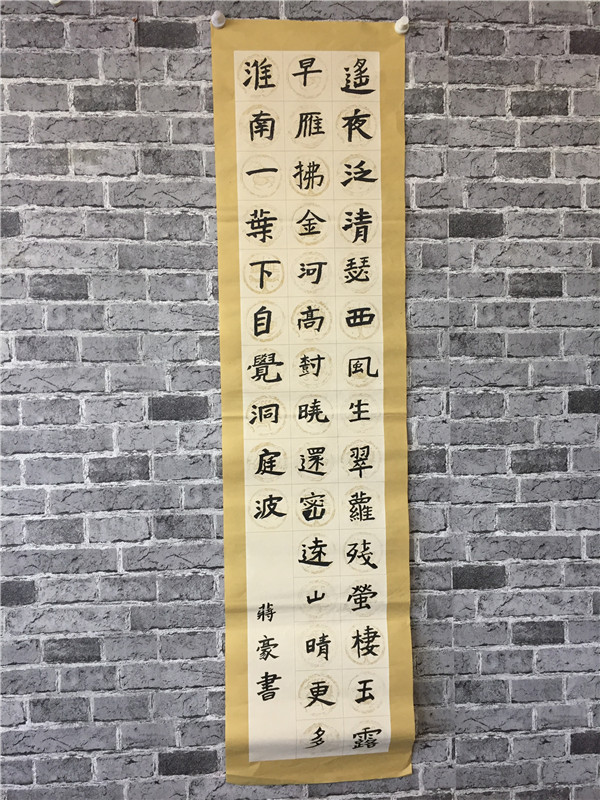 遙夜泛清瑟西風生翠蘿残螢棲玉露
早雁拂金河高對曉還密遠山晴更多
淮南一葉下自覺洞庭波
蔣豪書